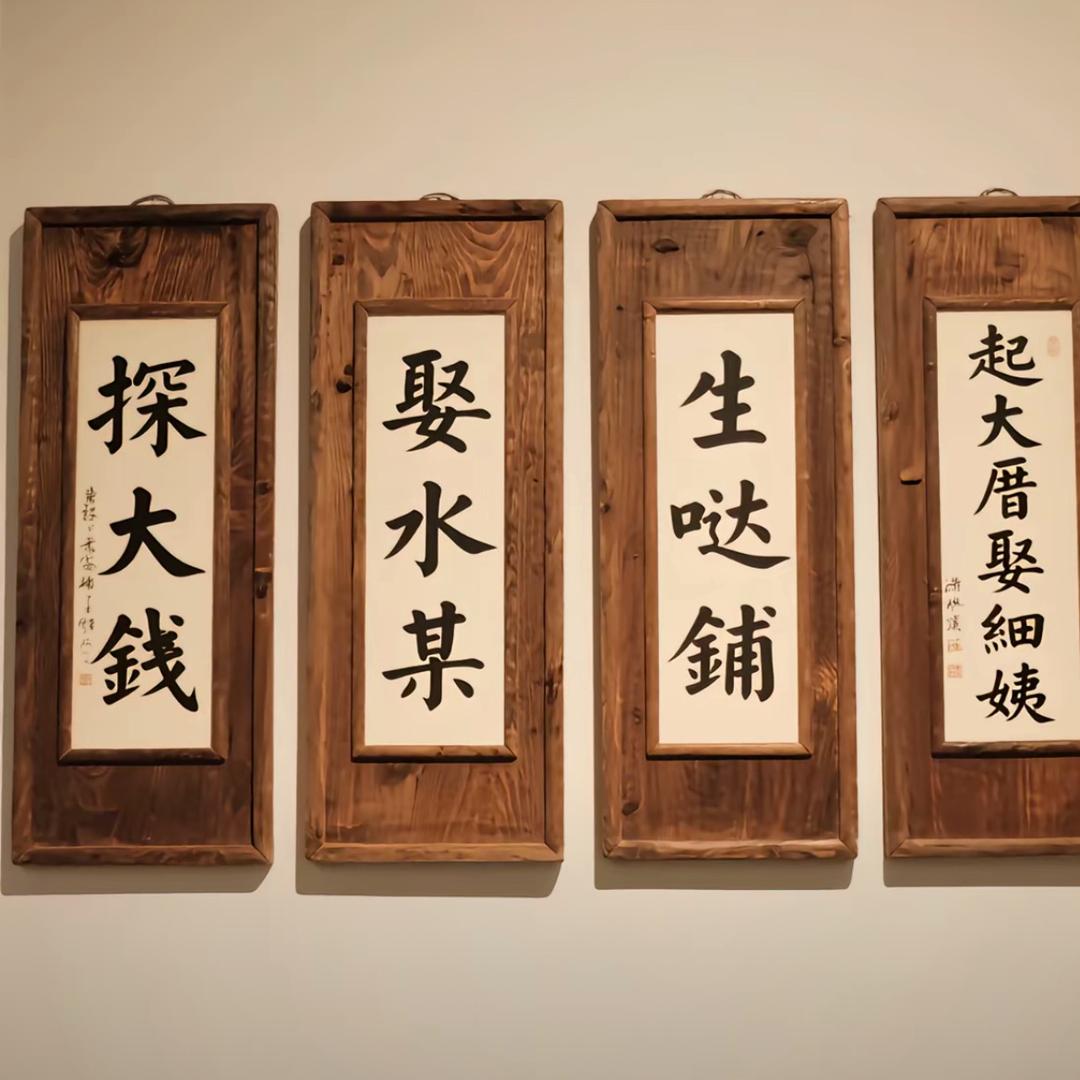 探大銭
娶水某
生哒鋪
起大厝娶細姨